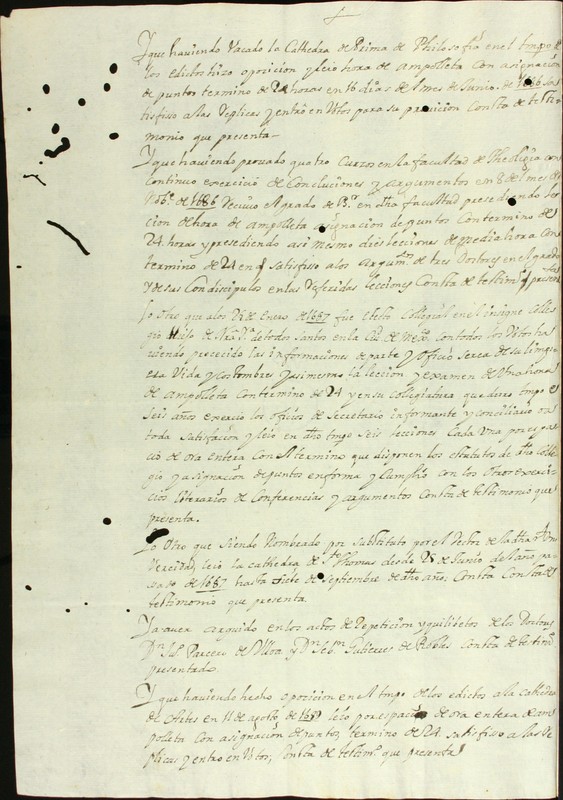 Y que haviendo Vacado la Cathedra de Prima de Philosofia en el tmpo de
los edictos hizo oposicion y leio hora de ampolleta con asignacion
de puntos termino de 24 horas en 16 dias del mes de Junio de 1686 sa
tisfiso a las Replices y entró en Votos para su provicion Consta de testi
monio que presenta
Y que haviendo provado quatro Cursos en la facultad de Theologia con
Continuo exercicio de Concluciones y argumentos en 8 del mes de
Nobe. de 1686 Recivio el grado de Br. en dha facultad presediendo lec
cion de hora de ampolleta asignacion de puntos Con termino de
24 horas y presediendo asi mesmo dies lecciones de media hora con
termino de 24 en satisfiso a los argumtos de tres Doctores en el grado
y de sus Condiscipulos en las Referidas lecciones Consta de testimo
Lo Otro que a los de Enero de 1687 fue electo Collegial en el insigne Colle
gio de Nra Sa. de todos Santos en la Ciud de Mexco. con todos los Votos ha
viendo presecido las informaciones de parte y Oficio Serca de su limpie
esa Vida y Costombres y asimesmo la leccion y examen de Vna hora
de ampolleta Con termino de 24 y en su Collegiatura que duro tmpo de
Seis años exercio los oficios de Secretario informante y conciliario con
toda Satisfacion y leio en dho tmpo Seis lecciones Cada Una por espa
cio de ora entera Con el termino que disponen los estatutos de dho Colle
gio y asignacion de puntos en forma y Cumplio con los Otros exerci
cios literarios de Conferencias y argumentos Consta de testimonio que
presenta.
Lo Otro que Siendo Nombrado por Substituto por el Rector de la dha Rl Uni
vercidad, leio la cathedra de Sto Thomas desde 28 de Junio del año pa
sado de 1687 hasta Siete de Septiembre de dho año. Consta
testimonio que presenta
Y a aver arguido en los actos de Repeticion y quilibetos de los Doctores
Dn Ju. Parcero de Vlloa y Dn Sebn. Gutierres de Robles Consta de testimo
presentado.
Y que haviendo hecho oposicion en el tmpo de los edictos a la cathedra
de Artes en 11 de agosto de leio por espacio de ora entera de am
polleta Con asignacion de puntos, termino de 24 satisfiso a las Re
plicas y entro en Votos, Consta de testimo que presenta